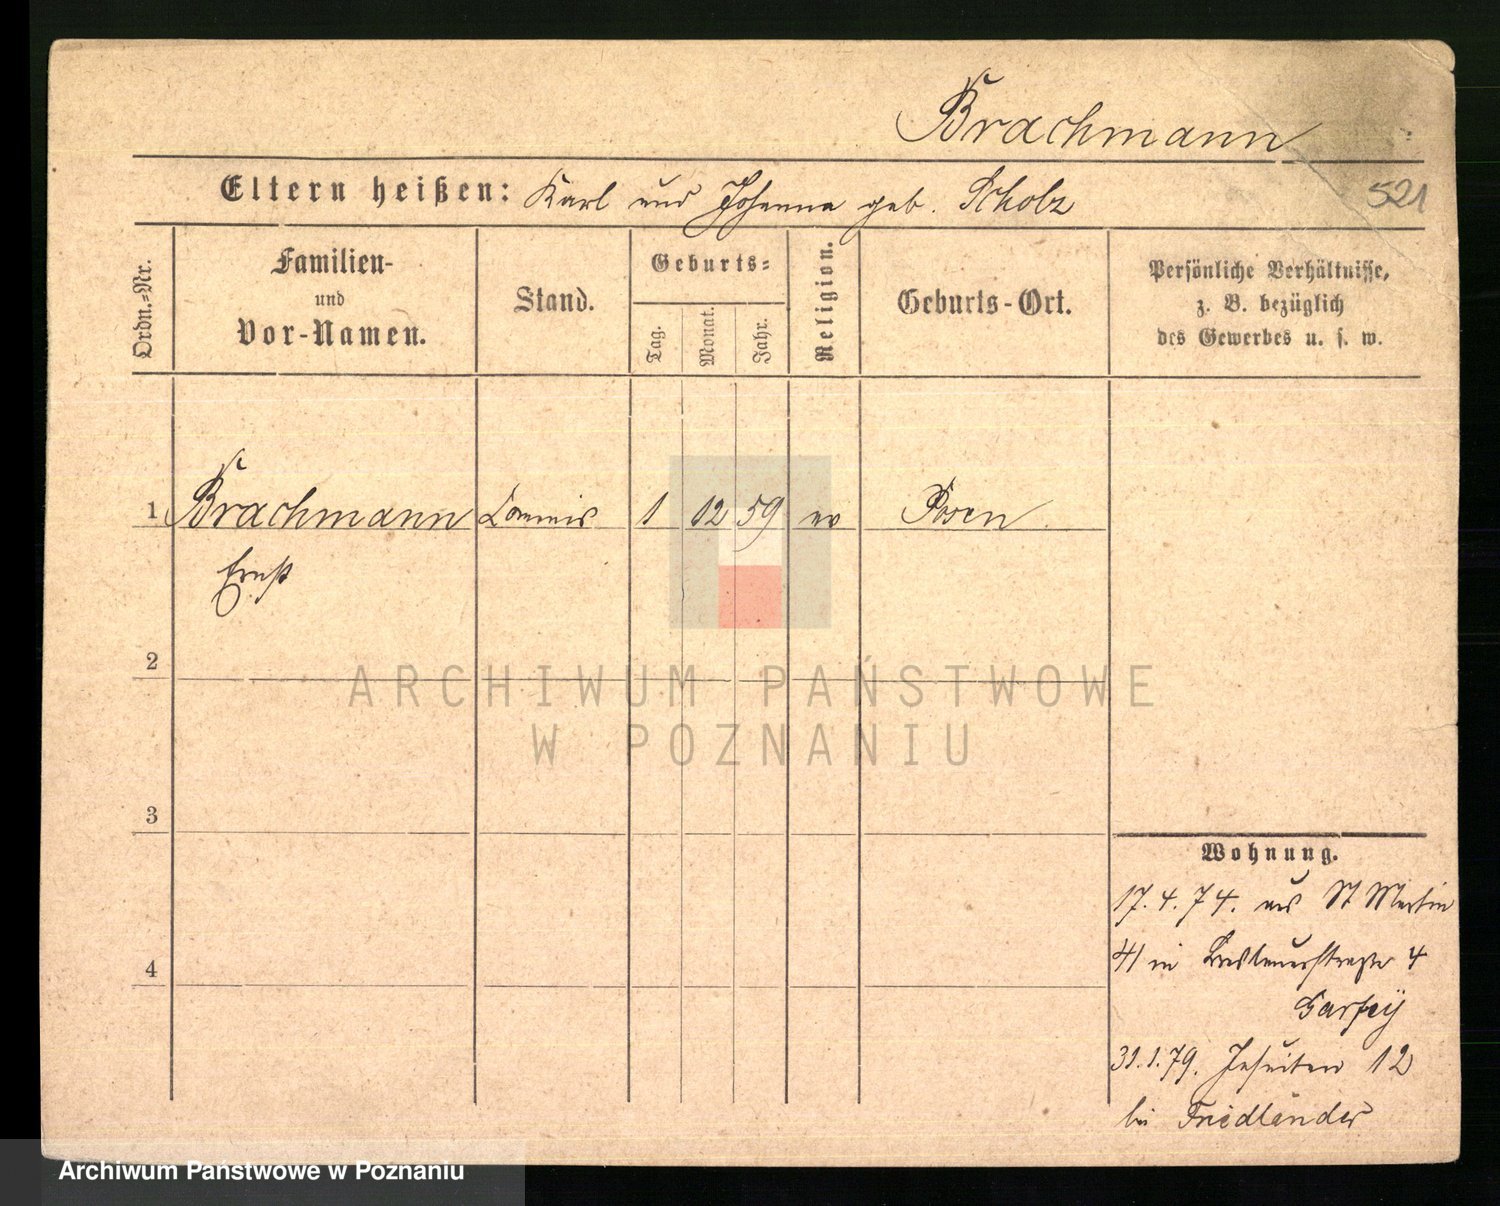 Brachmann
Eltern heißen: Karl und Johanna geb. Scholz
521
Ordn.-Nr.
Familien-
und
Vor-Namen.
Stand.
Geburts-
Tag.
Monat.
Jahr.
Religion.
Geburts-Ort.
Persönliche Verhältnisse,
z. B. bezüglich
des Gewerbes u. s. w.
1 Brachmann Commis 1 12 59 ev Posen
Ernst
2
ARCHIWUM PAŃSTWOWE
W POZNANIU
3
4
Wohnung.
17.4.74. aus St Martin
41 in Breslauerstraße 4
31.1.79. Jesuiten 12
bei Friedländer
Archiwum Państwowe w Poznaniu